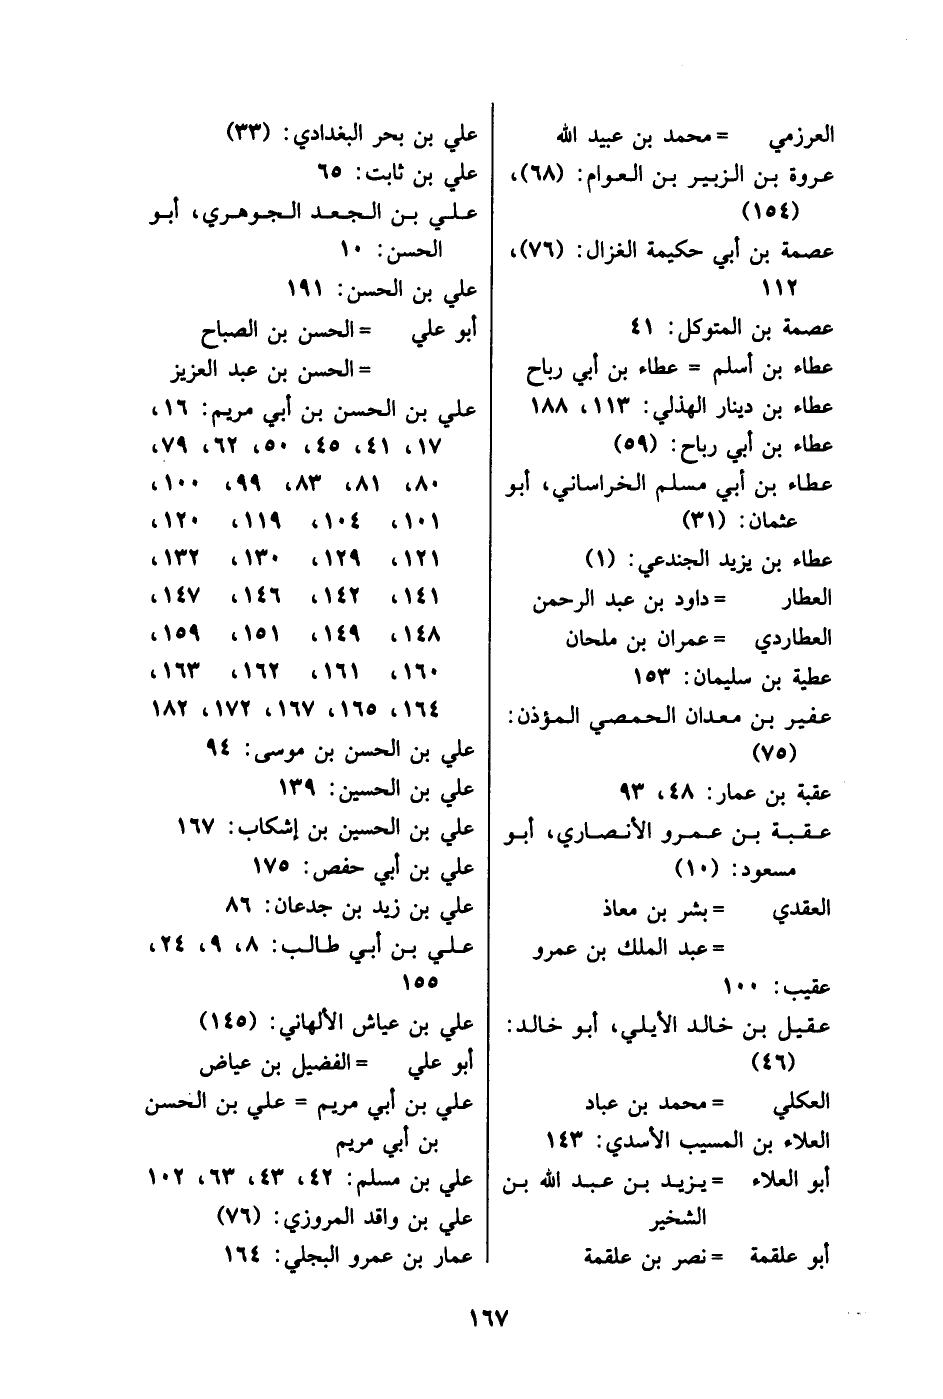 العرزمي = محمد بن عبيد الله
عروة بن الزبير بن العوام: (٦٨)،
(١٥٤)
عصمة بن أبي حكيمة الغزال: (٧٦)،
١١٢
عصمة بن المتوكل: ٤١
عطاء بن أسلم = عطاء بن أبي رباح
عطاء بن دينار الهذلي: ١١٣، ١٨٨
عطاء بن أبي رباح: (٥٩)
عطاء بن أبي مسلم الخراساني، أبو
عثمان: (٣١)
عطاء بن يزيد الجندعي: (١)
العطار = داود بن عبد الرحمن
العطاردي = عمران بن ملحان
عطية بن سليمان: ١٥٣
عفير بن معدان الحمصي المؤذن:
(٧٥)
عقبة بن عمار: ٤٨، ٩٣
عقبة بن عمرو الأنصاري، أبو
مسعود: (١٠)
العقدي = بشر بن معاذ
= عبد الملك بن عمرو
عقيب: ١٠٠
عقيل بن خالد الأيلي، أبو خالد:
(٤٦)
العكلي = محمد بن عباد
العلاء بن المسيب الأسدي: ١٤٣
أبو العلاء = يزيد بن عبد الله بن
الشخير
أبو علقمة = نصر بن علقمة
علي بن بحر البغدادي: (٣٣)
علي بن ثابت: ٦٥
علي بن الجعد الجوهري، أبو
الحسن: ١٠
علي بن الحسن: ١٩١
أبو علي = الحسن بن الصباح
= الحسن بن عبد العزيز
علي بن الحسن بن أبي مريم: ١٦،
١٧، ٤١، ٤٥، ٥٠، ٦٢، ٧٩،
٨٠، ٨١، ٨٣، ٩٩، ١٠٠،
١٠١، ١٠٤، ١١٩، ١٢٠،
١٢١، ١٢٩، ١٣٠، ١٣٢،
١٤١، ١٤٢، ١٤٦، ١٤٧،
١٤٨، ١٤٩، ١٥١، ١٥٩،
١٦٠، ١٦١، ١٦٢، ١٦٣،
١٦٤، ١٦٥، ١٦٧، ١٧٢، ١٨٢
علي بن الحسن بن موسى: ٩٤
علي بن الحسين: ١٣٩
علي بن الحسين بن إشكاب: ١٦٧
علي بن أبي حفص: ١٧٥
علي بن زيد بن جدعان: ٨٦
علي بن أبي طالب: ٨، ٩، ٢٤،
١٥٥
علي بن عياش الألهاني: (١٤٥)
أبو علي = الفضيل بن عياض
علي بن أبي مريم = علي بن الحسن
بن أبي مريم
علي بن مسلم: ٤٢، ٤٣، ٦٣، ١٠٢
علي بن واقد المروزي: (٧٦)
عمار بن عمرو البجلي: ١٦٤
١٦٧